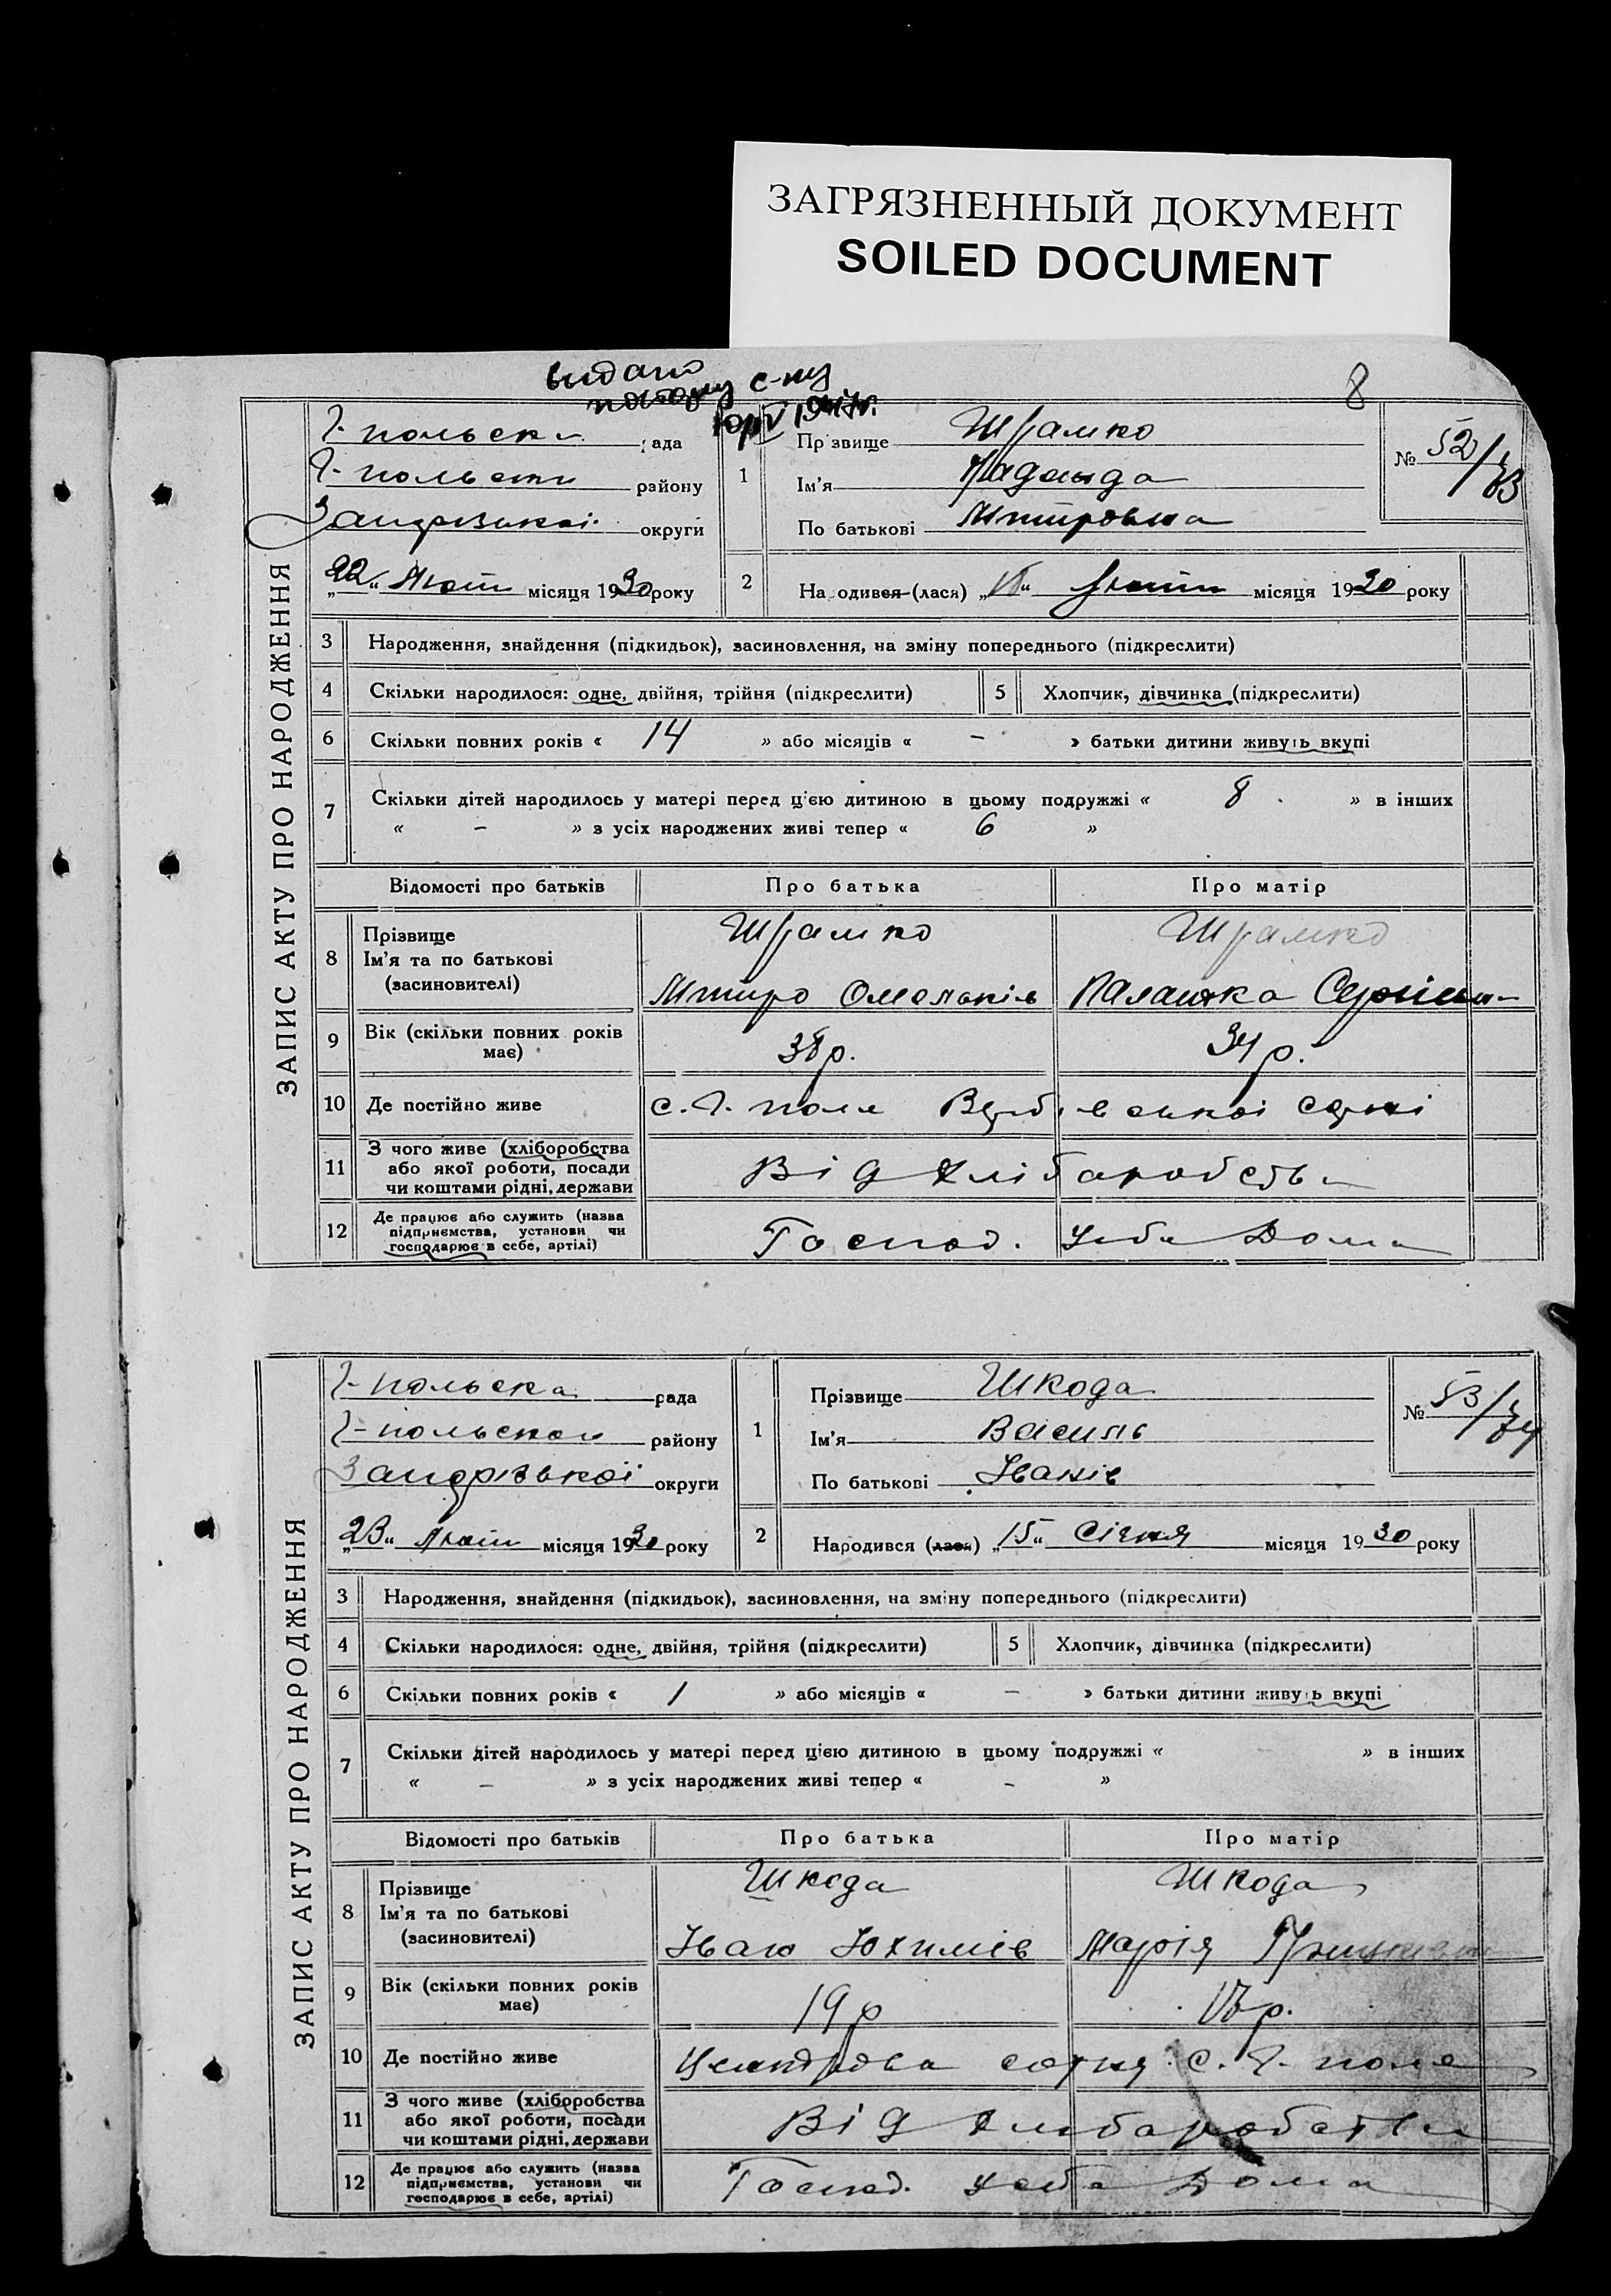 ЗАГРЯЗНЕННЫЙ ДОКУМЕНТ
SOILED DOCUMENT
видано
повторну с-ку
10/IV 1947г.
8
ЗАПИС АКТУ ПРО НАРОДЖЕННЯ
Г-польська рада
Г-польськ району
Запорізької округи
„22“ Лют місяця 1930 року
1
Прізвище Шрамко
Ім'я Надежда
По батькові Митровна
№ 52/73
2 Народився (лася) „18“ Лютня місяця 1930 року
3 Народження, знайдення (підкидьок), засиновлення, на зміну попереднього (підкреслити)
4 Скільки народилося: одне, двійня, трійня (підкреслити) 5 Хлопчик, дівчинка (підкреслити)
6 Скільки повних років « 14 » або місяців « – » батьки дитини живуть вкупі
7 Скільки дітей народилось у матері перед цією дитиною в цьому подружжі « 8 » в інших
« – » з усіх народжених живі тепер « 6 »
Відомості про батьків Про батька Про матір
8 Прізвище
Ім'я та по батькові
(засновителі)
Шрамко Шрамко
Митро Омельків Палажка
9 Вік (скільки повних років
має)
38р. 34р.
10 Де постійно живе с. Г. поле сотні
11 З чого живе (хліборобства
або якої роботи, посади
чи коштами рідні, держави
Від хліборобств
12 Де працює або служить (назва
підприємства, установи чи
господарює в себе, артілі)
Господ. у себе дома
ЗАПИС АКТУ ПРО НАРОДЖЕННЯ
Г-польська рада
Г-польської району
Запорізької округи
„23“ Лют місяця 1930 року
1
Прізвище Шкода
Ім'я Василь
По батькові Іванів
№ 53/74
2 Народився (лася) „15“ Січня місяця 1930 року
3 Народження, знайдення (підкидьок), засиновлення, на зміну попереднього (підкреслити)
4 Скільки народилося: одне, двійня, трійня (підкреслити) 5 Хлопчик, дівчинка (підкреслити)
6 Скільки повних років « 1 » або місяців « – » батьки дитини живуть вкупі
7 Скільки дітей народилось у матері перед цією дитиною в цьому подружжі « » в інших
« – » з усіх народжених живі тепер « – »
Відомості про батьків Про батька Про матір
8 Прізвище
Ім'я та по батькові
(засиновителі)
Шкода Шкода
Іван Юхимів Марія
9 Вік (скільки повних років
має)
19р р.
10 Де постійно живе Центрова сотня с. Г. поле
11 З чого живе (хліборобства
або якої роботи, посади
чи коштами рідні, держави
Від хліборобства
12 Де працює або служить (назва
підприємства, установи чи
господарює в себе, артілі)
Господ. у себе дома